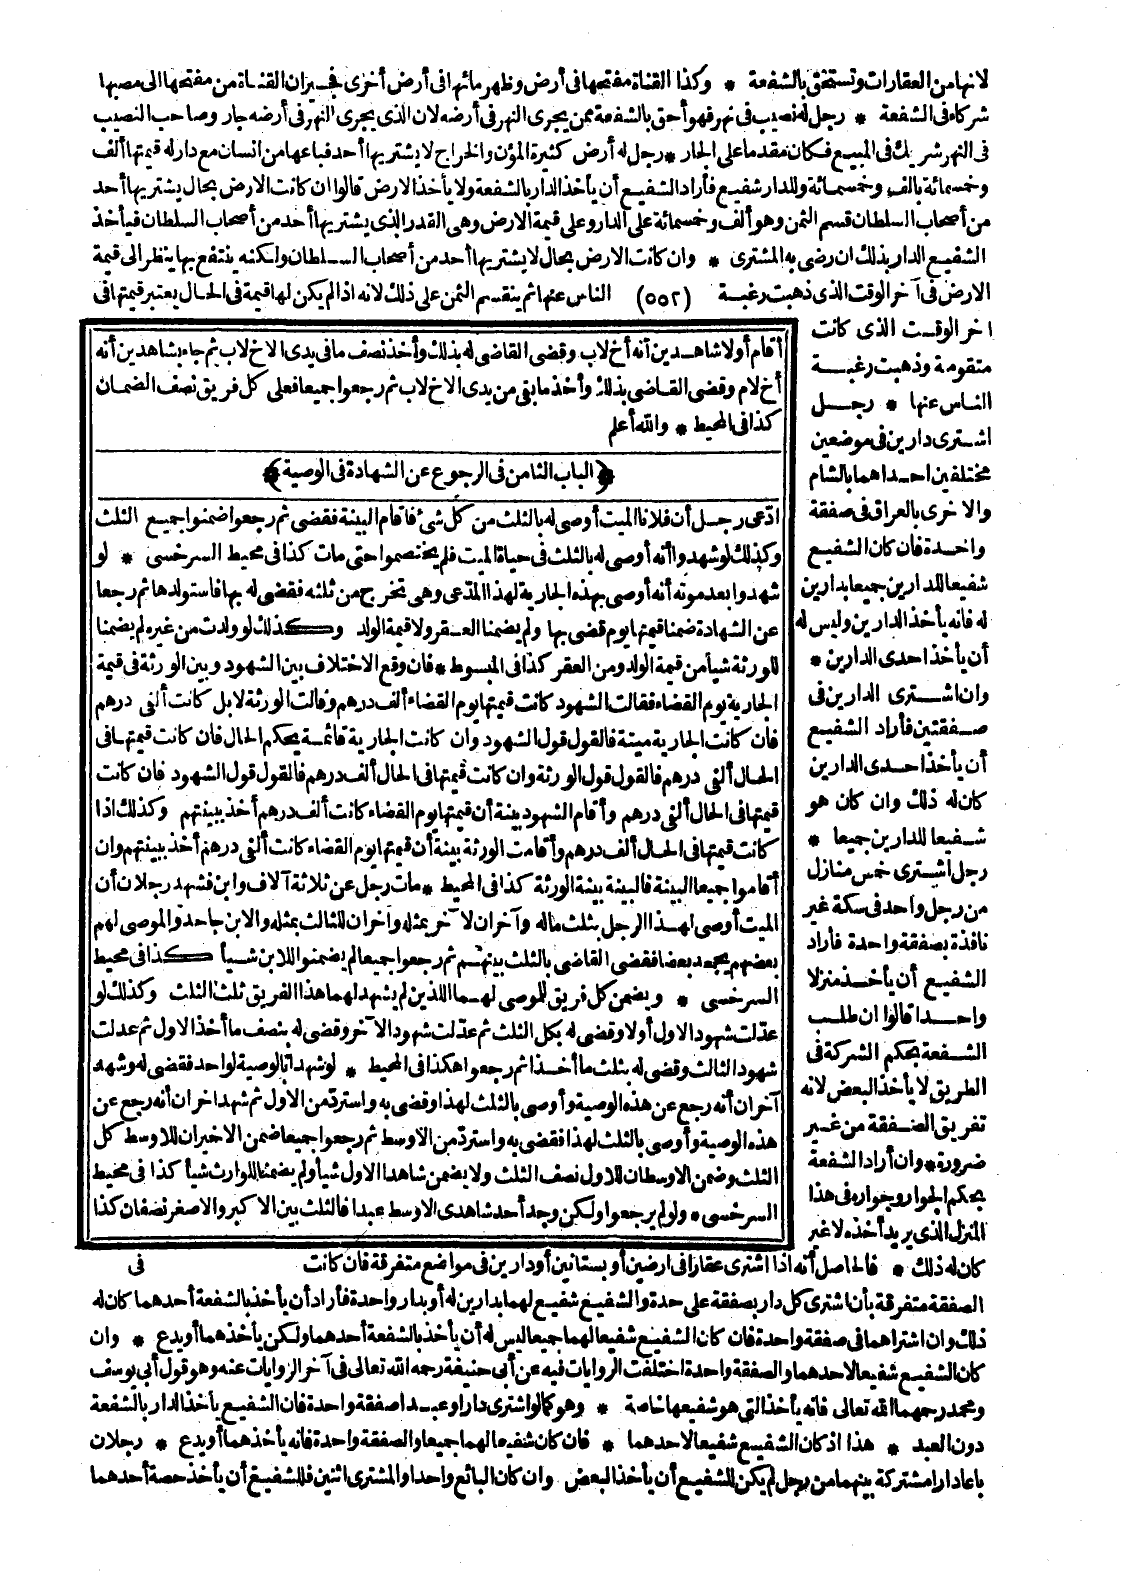 لانها من العقارات وتستحق بالشفعة * وكذا القناة مفتحها فى أرض وظهر مائها فى أرض أخرى فجيران القناة من مفتحها الى مصبها
شركاء فى الشفعة * رجل له نصيب فى نهر فهو أحق بالشفعة ممن يجرى النهر فى أرضه لان الذى يجرى النهر فى أرضه جار وصاحب النصيب
فى النهر شريك فى المبيع فكان مقدما على الجار * رجل له أرض كثيرة المؤن والخراج لا يشتريها أحد فباعها من انسان مع دار له قيمتها ألف
وخمسمائة بالف وخمسمائة وللدار شفيع فأراد الشفيع أن يأخذ الدار بالشفعة ولا يأخذ الارض قالوا ان كانت الارض بحال يشتريها أحد
من أصحاب السلطان قسم الثمن وهو ألف وخمسمائة على الدار وعلى قيمة الارض وهى القدر الذى يشتريها أحد من أصحاب السلطان فيأخذ
الشفيع الدار بذلك ان رضى به المشترى * وان كانت الارض بحال لا يشتريها أحد من أصحاب السلطان ولكنه ينتفع بها ينظر الى قيمة
الارض فى آخر الوقت الذى ذهبت رغبة (٥٥٢) الناس عنها ثم ينقسم الثمن على ذلك لانه اذا لم يكن لها قيمة فى الحال يعتبر قيمتها فى
اخر الوقت الذى كانت
متقومة وذهبت رغبة
الناس عنها * رجل
اشترى دارين فى موضعين
مختلفين احداهما بالشام
والاخرى بالعراق فى صفقة
واحدة فان كان الشفيع
شفيعا للدارين جميعا بدارين
له فانه يأخذ الدارين وليس له
أن يأخذ احدى الدارين *
وان اشترى الدارين فى
صفقتين فأراد الشفيع
أن يأخذ احدى الدارين
كان له ذلك وان كان هو
شفيعا للدارين جميعا *
رجل اشترى خمس منازل
من رجل واحد فى سكة غير
نافذة بصفقة واحدة فأراد
الشفيع أن يأخذ منزلا
واحدا قالوا ان طلب
الشفعة بحكم الشركة فى
الطريق لا يأخذ البعض لانه
تفريق الصفقة من غير
ضرورة * وان أراد الشفعة
بحكم الجوار وجواره فى هذا
المنزل الذى يريد أخذه لا غير
أقام أولا شاهدين أنه أخ لاب وقضى القاضى له بذلك وأخذ نصف ما فى يدى الاخ لاب ثم جاء بشاهدين أنه
أخ لام وقضى القاضى بذلك وأخذ ما بقى من يدى الاخ لاب ثم رجعوا جميعا فعلى كل فريق نصف الضمان
كذا فى المحيط * والله أعلم
﴿الباب الثامن فى الرجوع عن الشهادة فى الوصية﴾
ادعى رجل أن فلانا الميت أوصى له بالثلث من كل شئ فاقام البينة فقضى ثم رجعوا ضمنوا جميع الثلث
وكذلك لو شهدوا أنه أوصى له بالثلث فى حياة الميت فلم يختصموا حتى مات كذا فى محيط السرخسى * لو
شهدوا بعد موته أنه أوصى بهذه الجارية لهذا المدعى وهى تخرج من ثلثه فقضى له بها فاستولدها ثم رجعا
عن الشهادة ضمنا قيمتها يوم قضى بها ولم يضمنا العقر ولا قيمة الولد وكذلك لو ولدت من غيره لم يضمنا
للورثة شيأ من قيمة الولد ومن العقر كذا فى المبسوط * فان وقع الاختلاف بين الشهود وبين الورثة فى قيمة
الجارية يوم القضاء فقالت الشهود كانت قيمتها يوم القضاء ألف درهم وقالت الورثة لا بل كانت ألفى درهم
فان كانت الجارية ميتة فالقول قول الشهود وان كانت الجارية قائمة يحكم الحال فان كانت قيمتها فى
الحال ألفى درهم فالقول قول الورثة وان كانت قيمتها فى الحال ألف درهم فالقول قول الشهود فان كانت
قيمتها فى الحال ألفى درهم وأقام الشهود بينة أن قيمتها يوم القضاء كانت ألف درهم أخذ ببينتهم وكذلك اذا
كانت قيمتها فى الحال ألف درهم وأقامت الورثة بينة أن قيمتها يوم القضاء كانت ألفى درهم أخذ ببينتهم وان
أقاموا جميعا البينة فالبينة بينة الورثة كذا فى المحيط * مات رجل عن ثلاثة آلاف وابن فشهد رجلان أن
الميت أوصى لهذا الرجل بثلث ماله وآخران لآخر بمثله واخران للثالث بمثله والابن جاحد والموصى لهم
بعضهم يجحد بعضا فقضى القاضى بالثلث بينهم ثم رجعوا جميعا لم يضمنوا للابن شيأ كذا فى محيط
السرخسى * ويضمن كل فريق للموصى لهما اللذين لم يشهد لهما هذا الفريق ثلث الثلث وكذلك لو
عدلت شهود الاول أولا وقضى له بكل الثلث ثم عدلت شهود الآخر وقضى له بنصف ما أخذ الاول ثم عدلت
شهود الثالث وقضى له بثلث ما أخذا ثم رجعوا هكذا فى المحيط * لو شهدا بالوصية لواحد فقضى له وشهد
آخران أنه رجع عن هذه الوصية وأوصى بالثلث لهذا وقضى به واسترد من الاول ثم شهد اخران أنه رجع عن
هذه الوصية وأوصى بالثلث لهذا فقضى به واسترد من الاوسط ثم رجعوا جميعا ضمن الاخيران للاوسط كل
الثلث وضمن الاوسطان للاول نصف الثلث ولا يضمن شاهدا الاول شيأ ولم يضمنا للوارث شيأ كذا فى محيط
السرخسى * ولو لم يرجعوا ولكن وجد أحد شاهدى الاوسط عبدا فالثلث بين الاكبر والاصغر نصفان كذا
فى
كان له ذلك * فالحاصل أنه اذا اشترى عقارا فى ارضين أو بستانين أو دارين فى مواضع متفرقة فان كانت
الصفقة متفرقة بأن اشترى كل دار بصفقة على حدة والشفيع شفيع لهما بدارين له أو بدار واحدة فأراد أن يأخذ بالشفعة أحدهما كان له
ذلك وان اشتراهما فى صفقة واحدة فان كان الشفيع شفيعا لهما جميعا ليس له أن يأخذ بالشفعة أحدهما ولكن يأخذهما أو يدع * وان
كان الشفيع شفيعا لاحدهما والصفقة واحدة اختلفت الروايات فيه عن أبى حنيفة رحمه الله تعالى فى آخر الروايات عنه وهو قول أبى يوسف
ومحمد رحمهما الله تعالى فانه يأخذ التى هو شفيعها خاصة * وهو كما لو اشترى دارا وعبدا صفقة واحدة فان الشفيع يأخذ الدار بالشفعة
دون العبد * هذا اذ كان الشفيع شفيعا لاحدهما * فان كان شفيعا لهما جميعا والصفقة واحدة فانه يأخذهما أو يدع * رجلان
باعا دارا مشتركة بينهما من رجل لم يكن للشفيع أن يأخذ البعض وان كان البائع واحدا والمشترى اثنين فللشفيع أن يأخذ حصة أحدهما